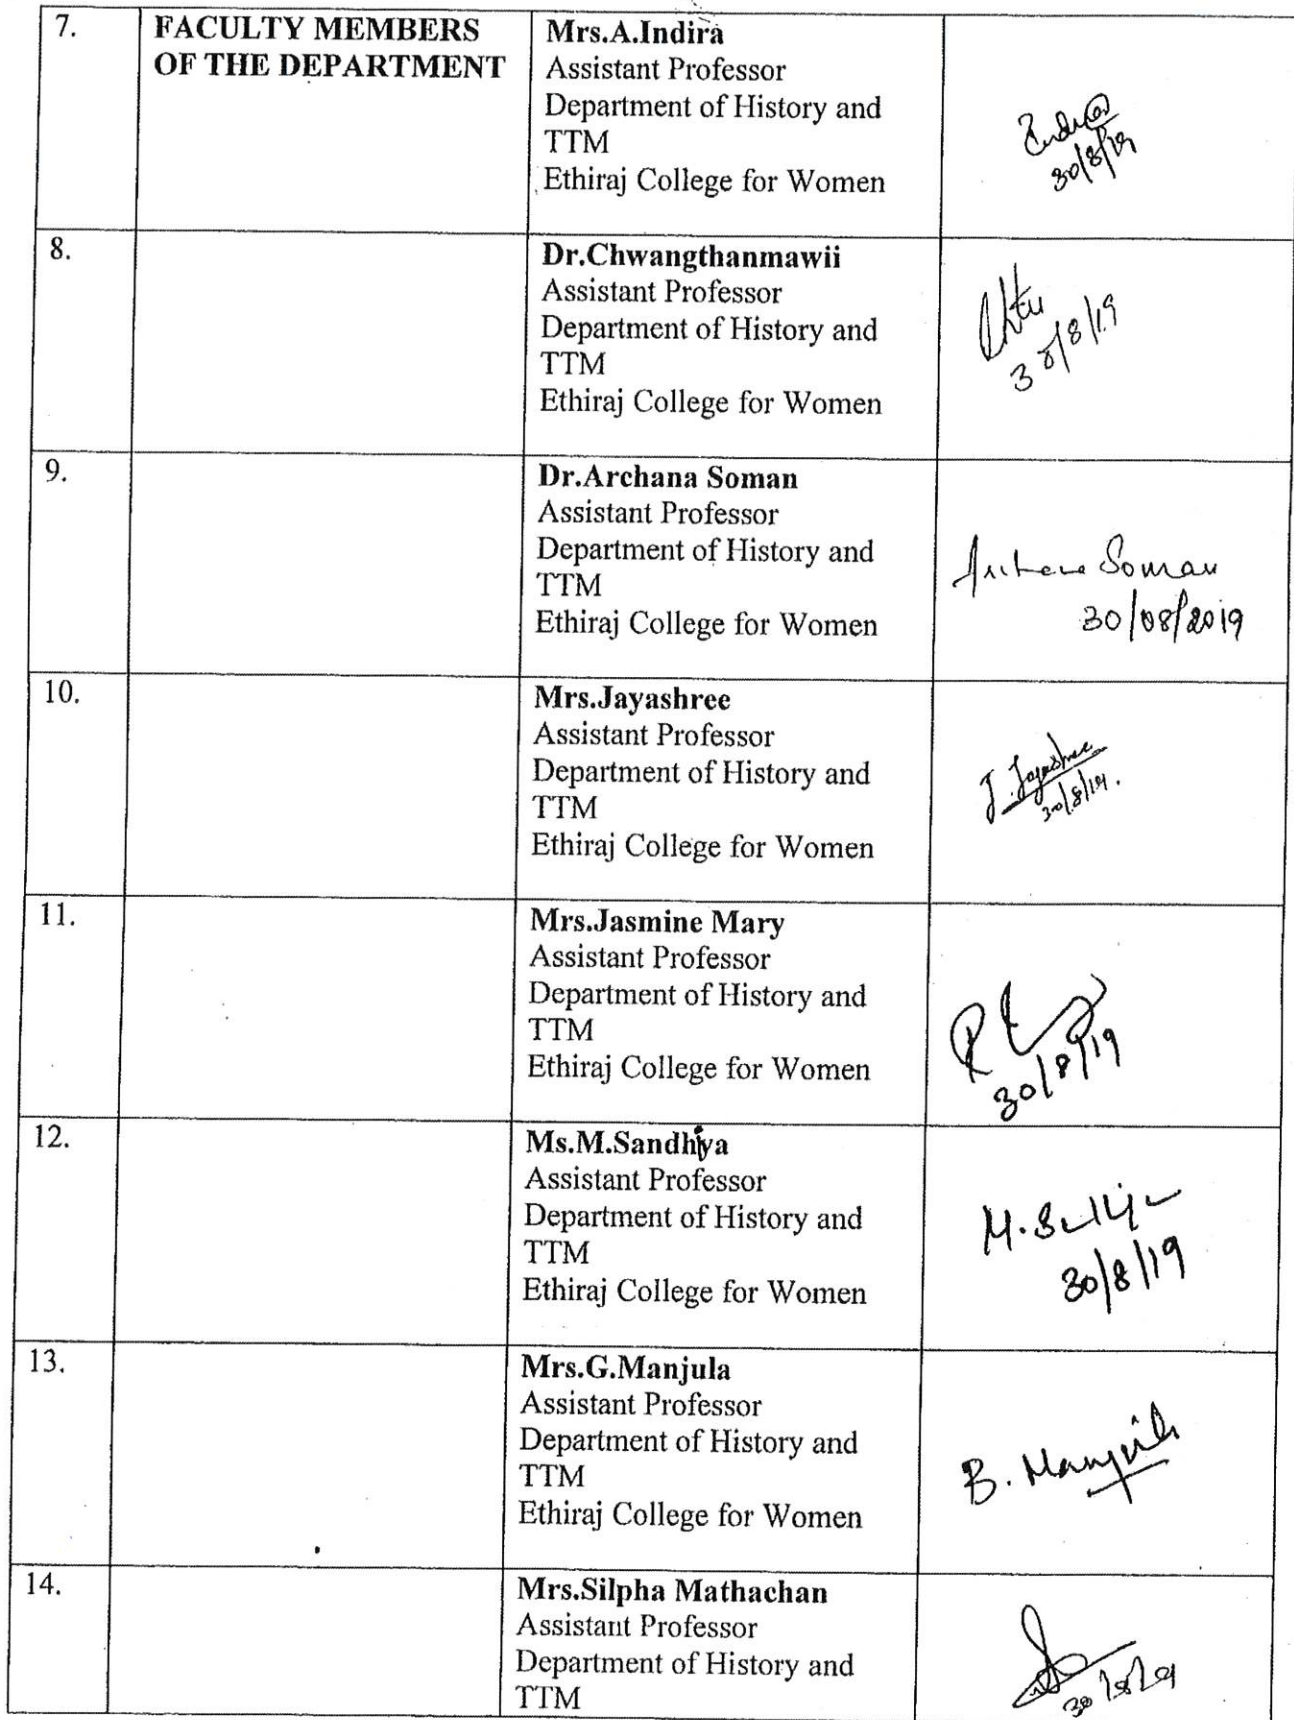 7.
FACULTY MEMBERS
OF THE DEPARTMENT
Mrs.A.Indira
Assistant Professor
Department of History and
TTM
Ethiraj College for Women
30/8/19
8.
Dr.Chwangthanmawii
Assistant Professor
Department of History and
TTM
Ethiraj College for Women
30/8/19
9.
Dr.Archana Soman
Assistant Professor
Department of History and
TTM
Ethiraj College for Women
Archana Soman
30/08/2019
10.
Mrs.Jayashree
Assistant Professor
Department of History and
TTM
Ethiraj College for Women
J. Jayashree
30/8/19.
11.
Mrs.Jasmine Mary
Assistant Professor
Department of History and
TTM
Ethiraj College for Women
30/8/19
12.
Ms.M.Sandhiya
Assistant Professor
Department of History and
TTM
Ethiraj College for Women
30/8/19
13.
Mrs.G.Manjula
Assistant Professor
Department of History and
TTM
Ethiraj College for Women
B. Manjula
14.
Mrs.Silpha Mathachan
Assistant Professor
Department of History and
TTM
30/8/19